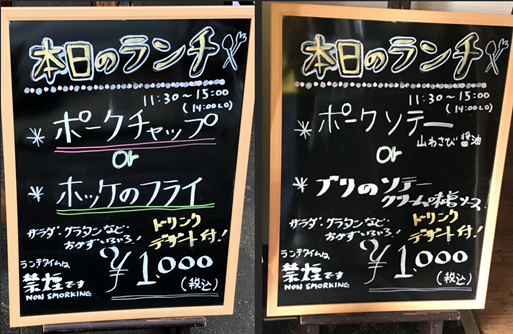 本日のランチ
11:30〜15:00
(14:00LO)
* ポークチャップ
or
* ホッケのフライ
サラダ・グラタンなど、
おかずいろいろ!
ドリンク
デザート付!
ランチタイムは、
禁煙です
NON SMORKING
¥1.000
(税込)
本日のランチ
11:30〜15:00
(14:00LO)
* ポークソテー
山わさび醤油
or
* ブリのソテー
クリーム味噌ソース
サラダ・グラタンなど、
おかずいろいろ!
ドリンク
デザート付!
ランチタイムは、
禁煙です
NON SMORKING
¥1.000
(税込)